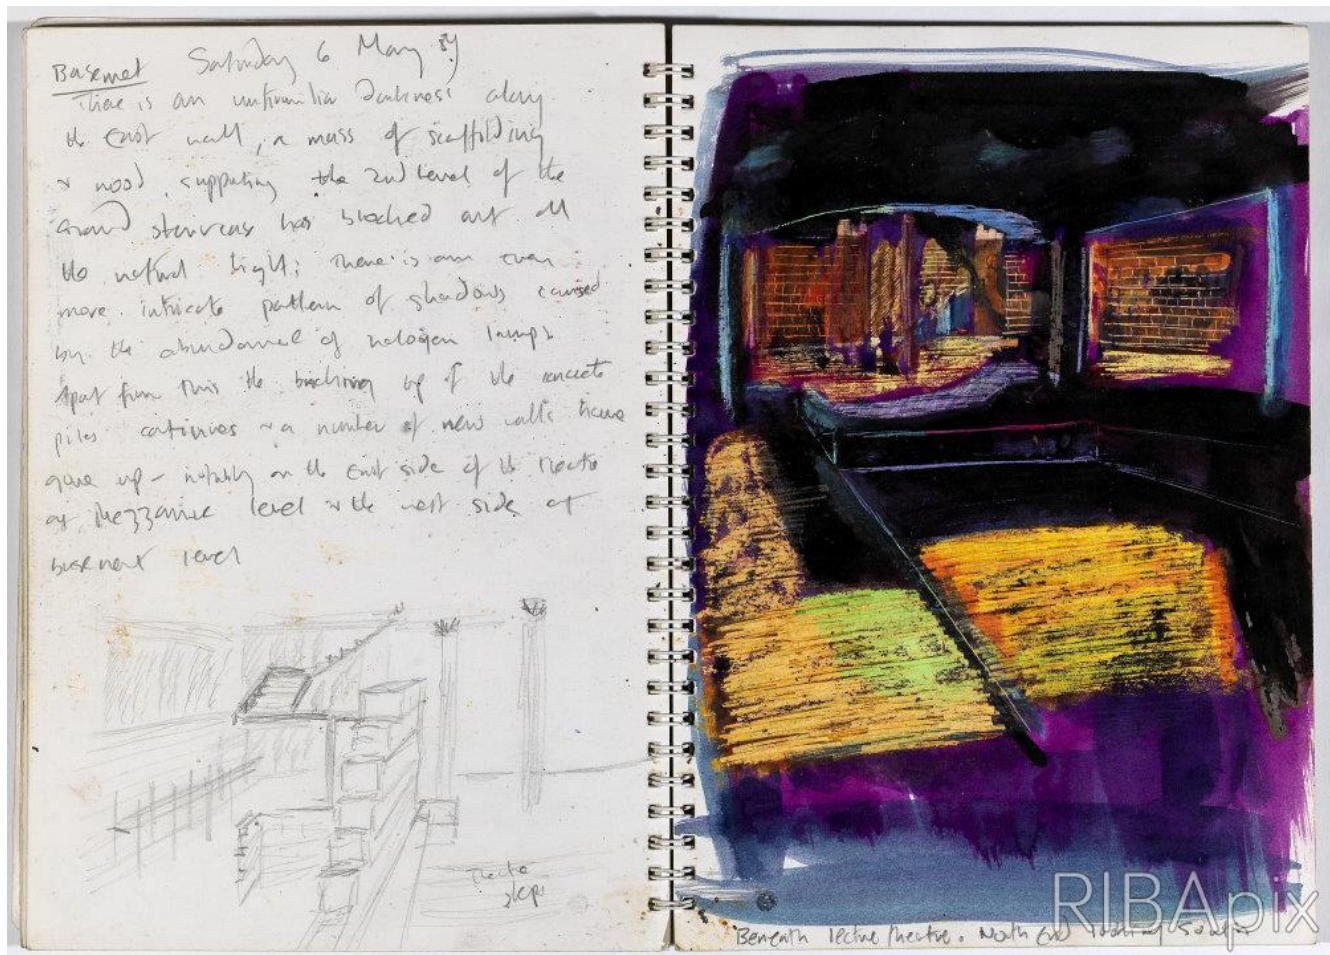 Basemet Saturday 6 May 89
There is an unfamiliar darkness along
the East wall, a mass of scaffolding
& wood supporting the 2nd level of the
Grand staircase has blocked out all
the natural light; there is an even
more intricate pattern of shadows caused
by the abundance of halogen lamps
Apart from this the bricking up of the concrete
piles continues & a number of new walls have
gone up - notably on the East side of the theatre
at Mezzanine level & the west side at
basement level
theatre
steps
Beneath lecture theatre. North End looking South
RIBApix